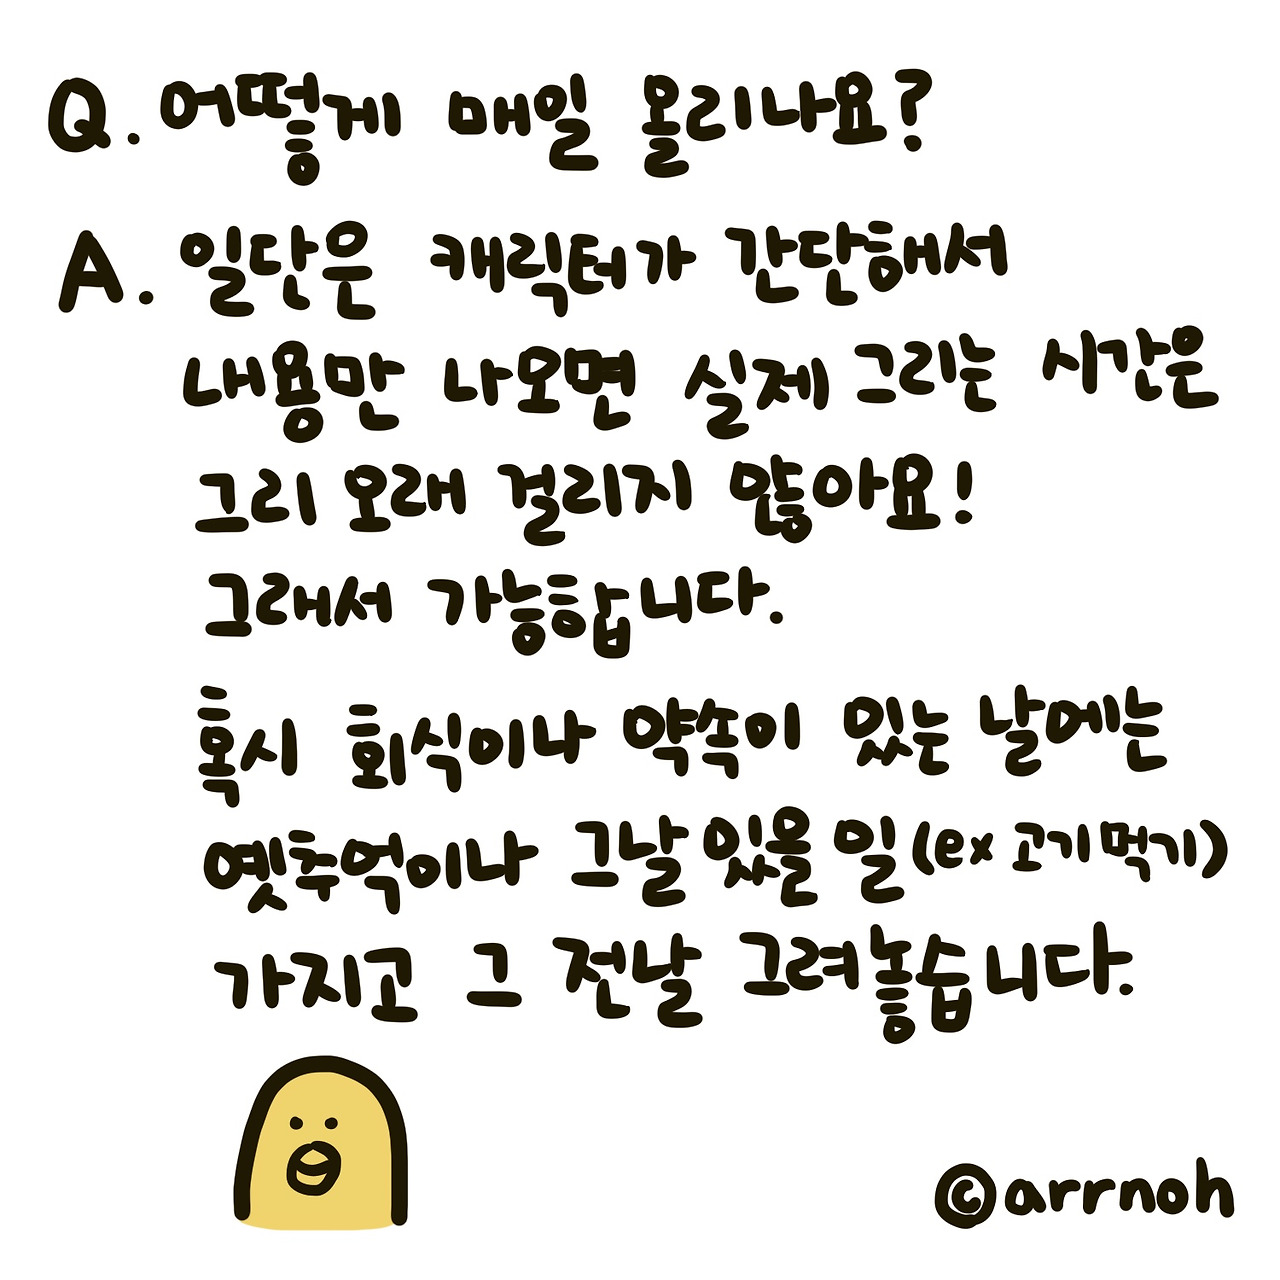 Q. 어떻게 매일 올리나요?
A. 일단은 캐릭터가 간단해서
내용만 나오면 실제 그리는 시간은
그리 오래 걸리지 않아요!
그래서 가능합니다.
혹시 회식이나 약속이 있는 날에는
옛추억이나 그날 있을 일 (ex 고기먹기)
가지고 그 전날 그려놓습니다.
©arrnoh